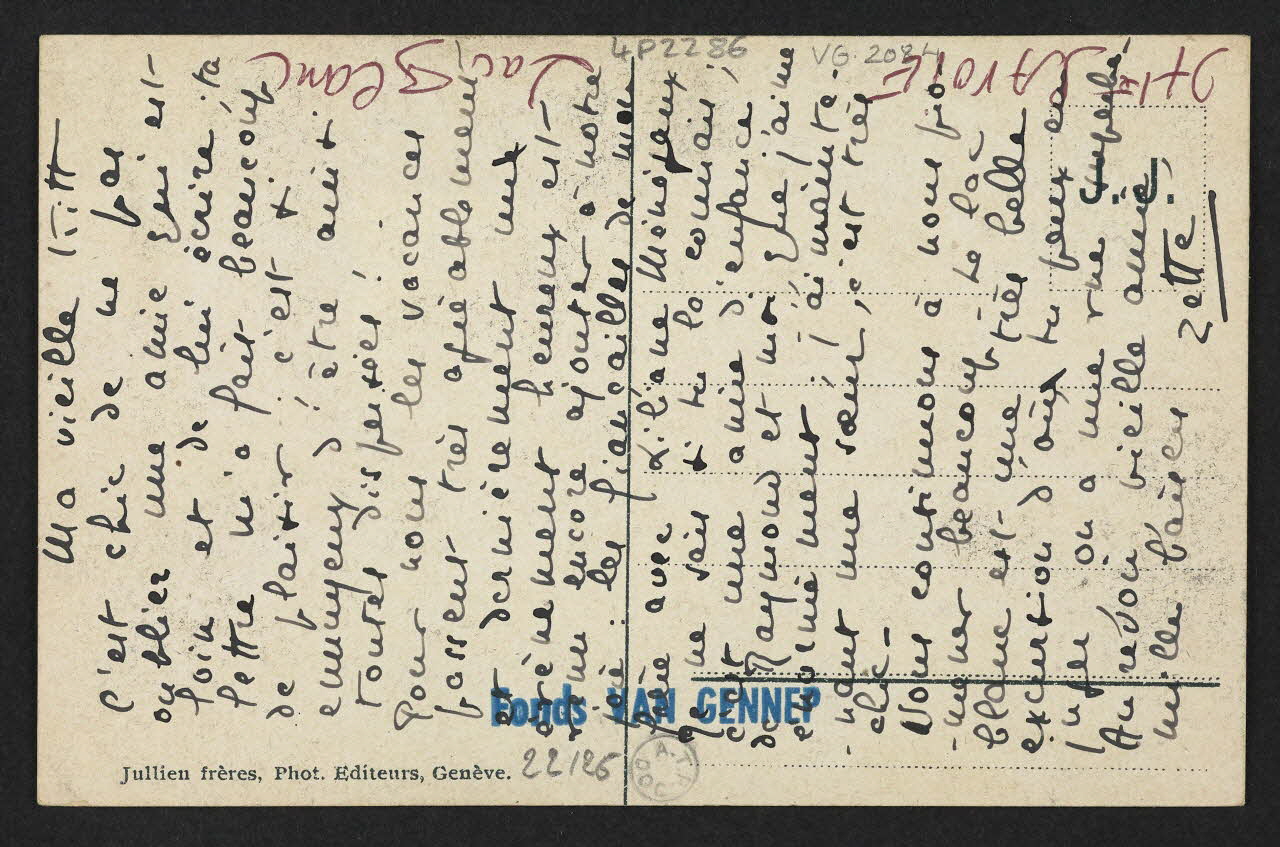 4P2286
VG. 2084
Hte SAVOIE
Lac Blanc
Ma vieille Kitt
C'est chic de ne pas
oublier une amie qui est
loin et de lui écrire. ta
lettre m'a fait beaucoup
de plaisir. c'est si
ennuyeux d'être ainsi
toutes dispersées !
Pour nous les vacances
passent très agréablement
et dernièrement un
évènement heureux est
venu encore ajouter à notre
joie : les fiançailles de mon
frère avec Liliane
Je ne sais si tu la connais ;
c'est une amie d'enfance
de Raymond et moi que j'aime
énormément. J'ai mainte-
nant une sœur, c'est très
chic -
Nous continuons à nous pro-
-mener beaucoup - Le lac
blanc est une très belle
excursion d'où tu peux
on a une vue superbe
Au revoir vieille amie
mille baisers
Zette
J. J.
Fonds VAN GENNEP
22/26
A.T.P.
Jullien frères, Phot. Editeurs, Genève.